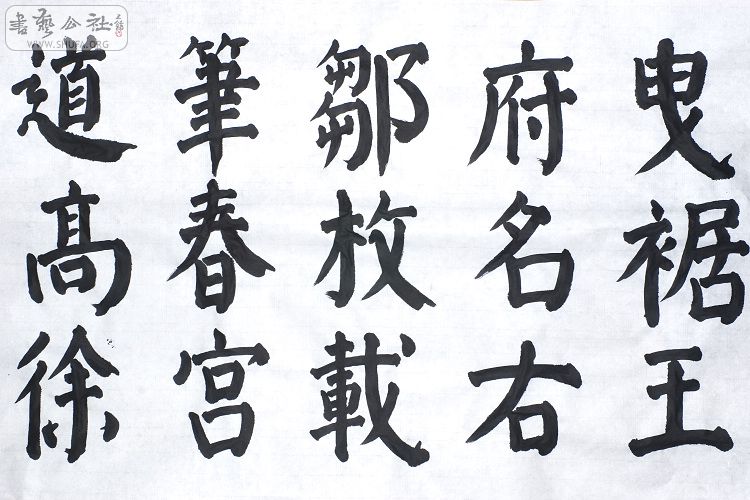 曳裾王
府名右
鄒枚載
筆春宮
道高徐
書藝公社
WWW.SHUFA.ORG